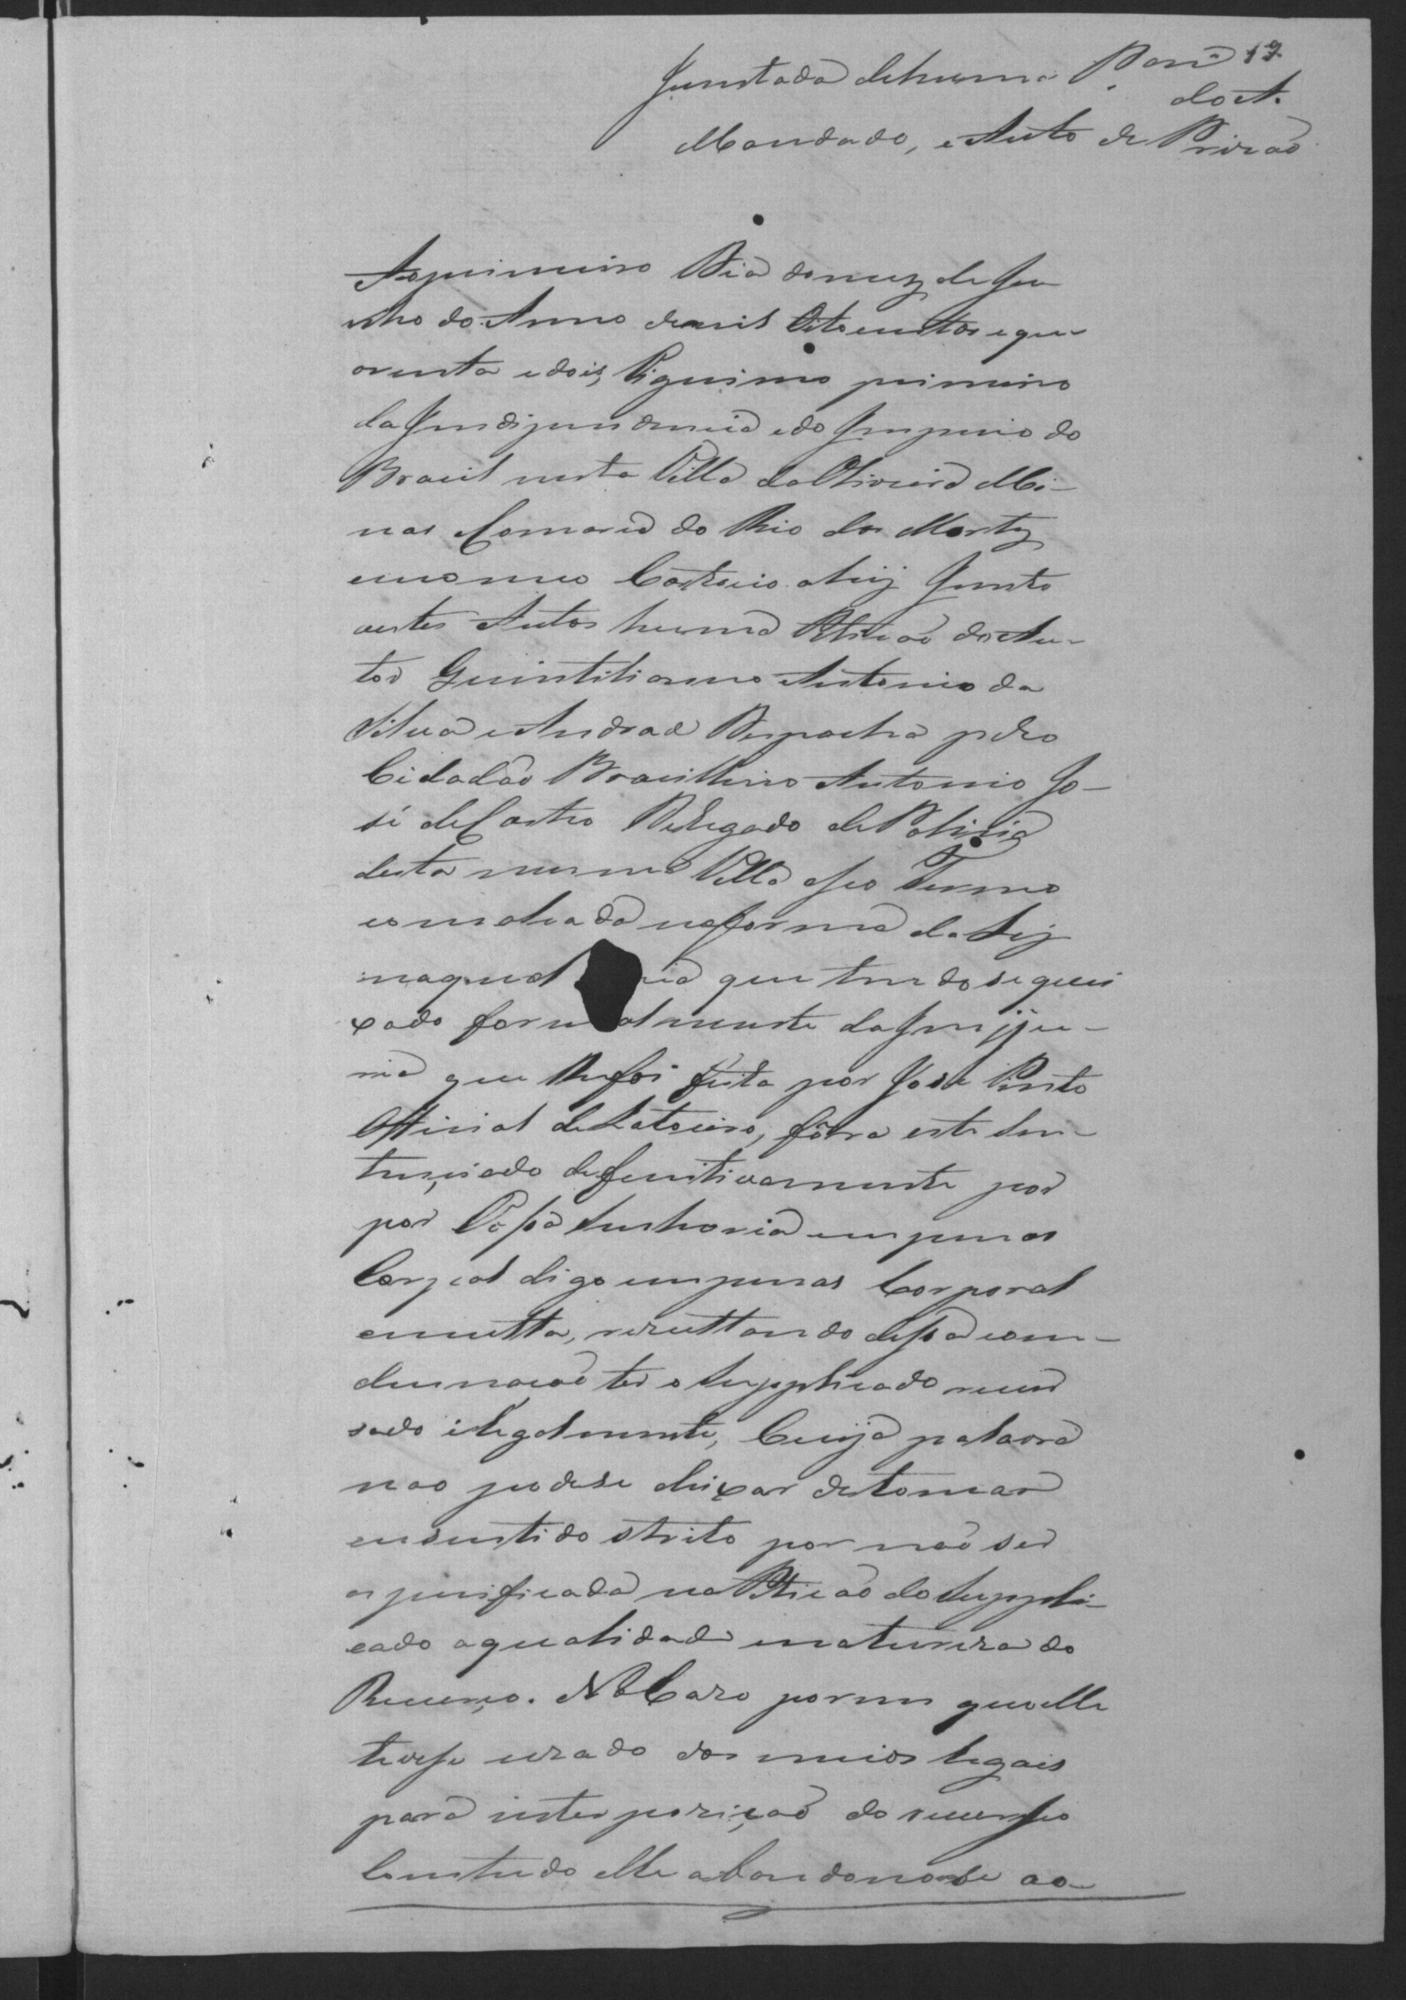 Juntada dehuma Pam 17
do A.
Mandado, e Auto de Prizaõ
Aoprimeiro Dia domez de Ju
nho do Anno demil Oitocentos e qua-
orenta e dois, Vigesimo primeiro
da Jndependencia edo Jmperio do
Brasil nesta Villa da Oliveira Mi-
nas Comarca do Rio das Mortes
em o meo Cartorio ahij Junto
aestes Autos huma Petiçaõ do Au-
tor Quintiliano Antonio da
Silva e Andrade Despacha pelo
Cidadão Brasilleiro Antonio Jo-
sé de Castro Delegado de Policia
desta mesma Villa eseo Termo
na forma da Leij
naquel que tendo se quei
xado formalmente da Jnjju-
ria que lhe foi feita por José Pinto
Official de Latoeiro, fôra este Sen-
tenciado defenitivamente por
por Vossa Senhoria em penas
Corpal digo em penas Corporal
emulta, rezultando dessa con-
demnaçaõ ter o Supplicado recur
sado ilegalmente, Cuja palavra
nao podese deixar detomar
em sentido strito por não ser
espesificada na Petiçaõ do Suppli-
cado a qualidade enatureza do
Recurço. No Cazo porem que elle
tivese uzado dos meios legais
para interpoziçaõ do recurso
Contudo elle abandonou-se ao